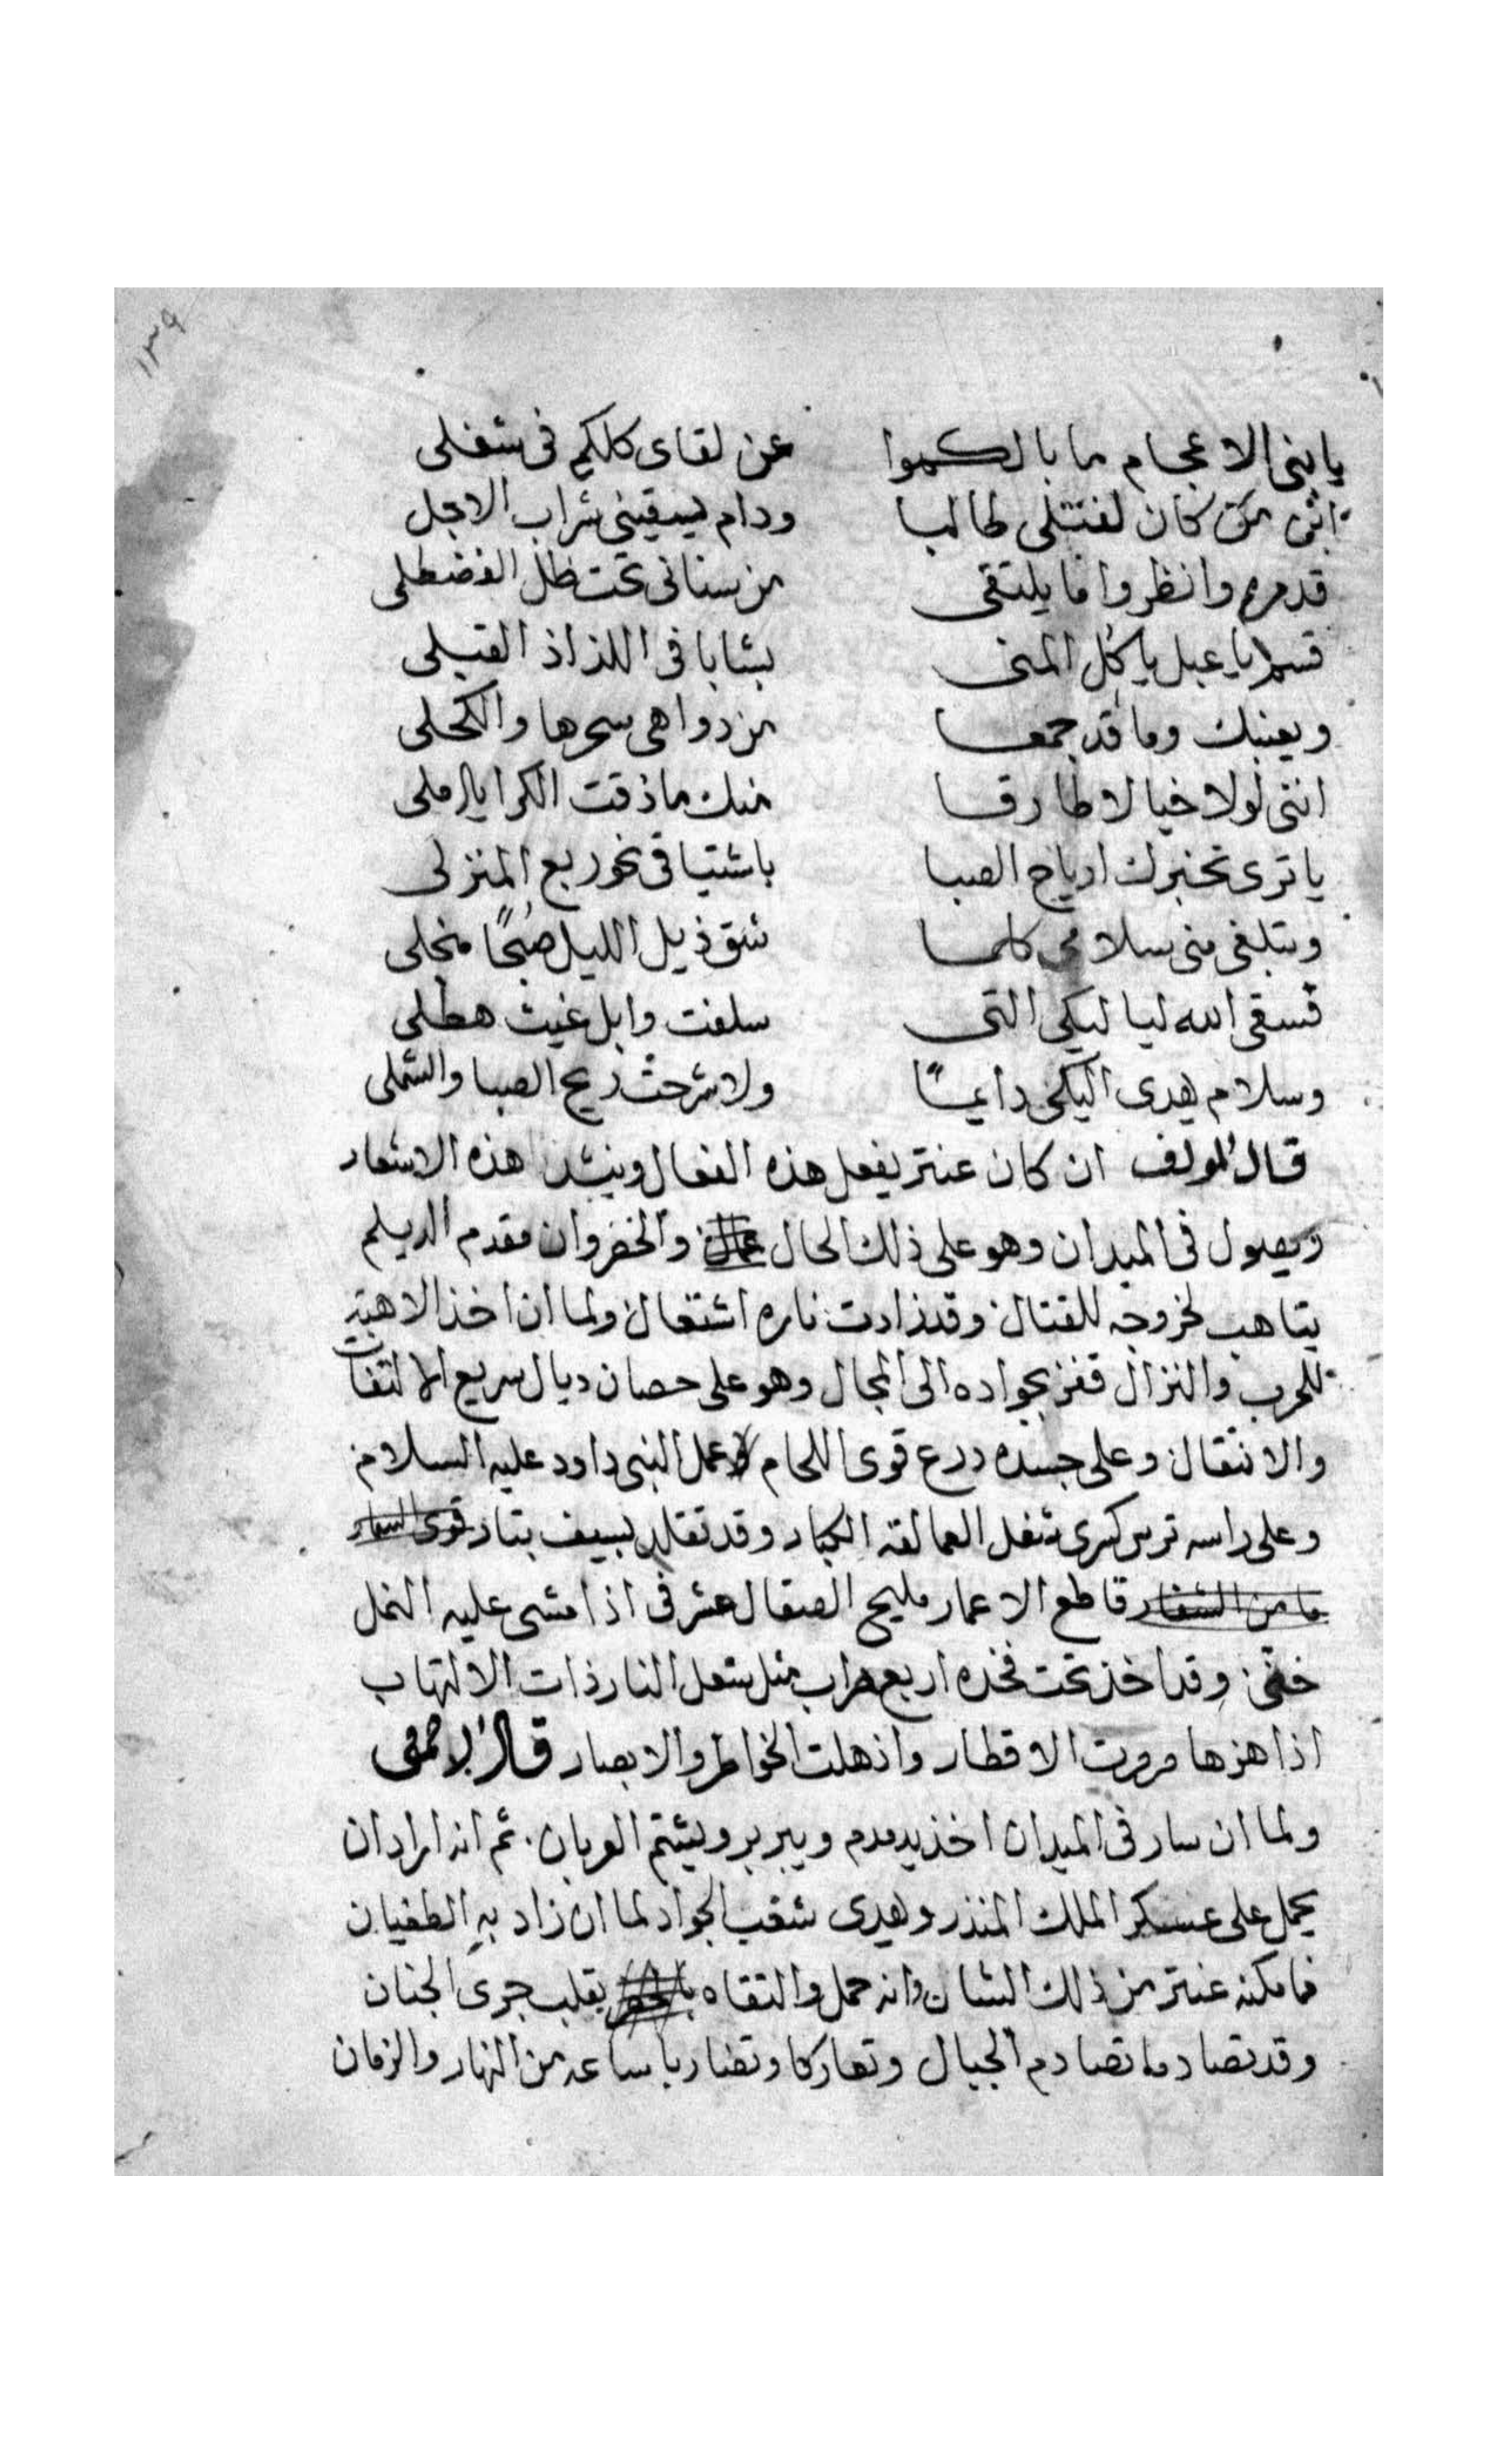 ١٣٩
يا بنى الاعجام ما بالكموا عن لقاى كلكم فى شغلى
اين من كان لقتلى طالبا ودام يسقينى شراب الاجل
قدموه وانظروا ما يلتقى من سنانى تحت ظل القسطلى
قسما يا عبل يا كل المنى بشابا فى اللذاذ القبلى
وبعينيك وما قد جمعا من دواهى سحرها والكحلى
اننى لولا خيالا طارقا منك ما ذقت الكرا يا املى
يا ترى تخبرك ارياح الصبا باشتياقى نحو ربع المنزلى
وتبلغى منى سلامى كلما شق ذيل الليل صبحًا منجلى
فسقى الله لياليكى التى سلفت وابل غيث هطلى
وسلام يهدى اليكى دايمًا ولا شرحت ريح الصبا والشملى
قال المولف ان كان عنتر يفعل هذه الفعال وينشد هذه الاشعار
ويصول فى الميدان وهو على ذلك الحال والخضروان مقدم الديلم
يتاهب لخروجه للقتال وقد زادت ناره اشتعال ولما ان اخذ الاهبة
للحرب والنزال قفز بجواده الى المجال وهو على حصان ديال سريع الالتفات
والانتقال وعلى جسده درع قوى اللحام عمل النبى داود عليه السلام
وعلى راسه ترس كسرى شغل العمالقه الكبار وقد تقلد بسيف بتار قوى السعار
ما من الشفار قاطع الاعمار مليح الصقال مشرفى اذا مشى عليه النمل
خفى وقد اخذ تحت فخذه اربع حراب مثل شعل النار ذات الالتهاب
اذا هزها مرورت الاقطار واذهلت الخواطر والابصار قال الاصمعى
ولما ان سار فى الميدان اخذ يدمدم ويبربر ويشتم العربان ثم انه اراد ان
يحمل على عسكر الملك المنذر ويهدى شغب الجواد لما ان زاد به الطغيان
فما مكنه عنتر من ذلك الشان وانه حمل والتقاه بقلب جرى الجنان
وقد تصادما تصادم الجبال وتعاركا وتضاربا ساعه من النهار والزمان